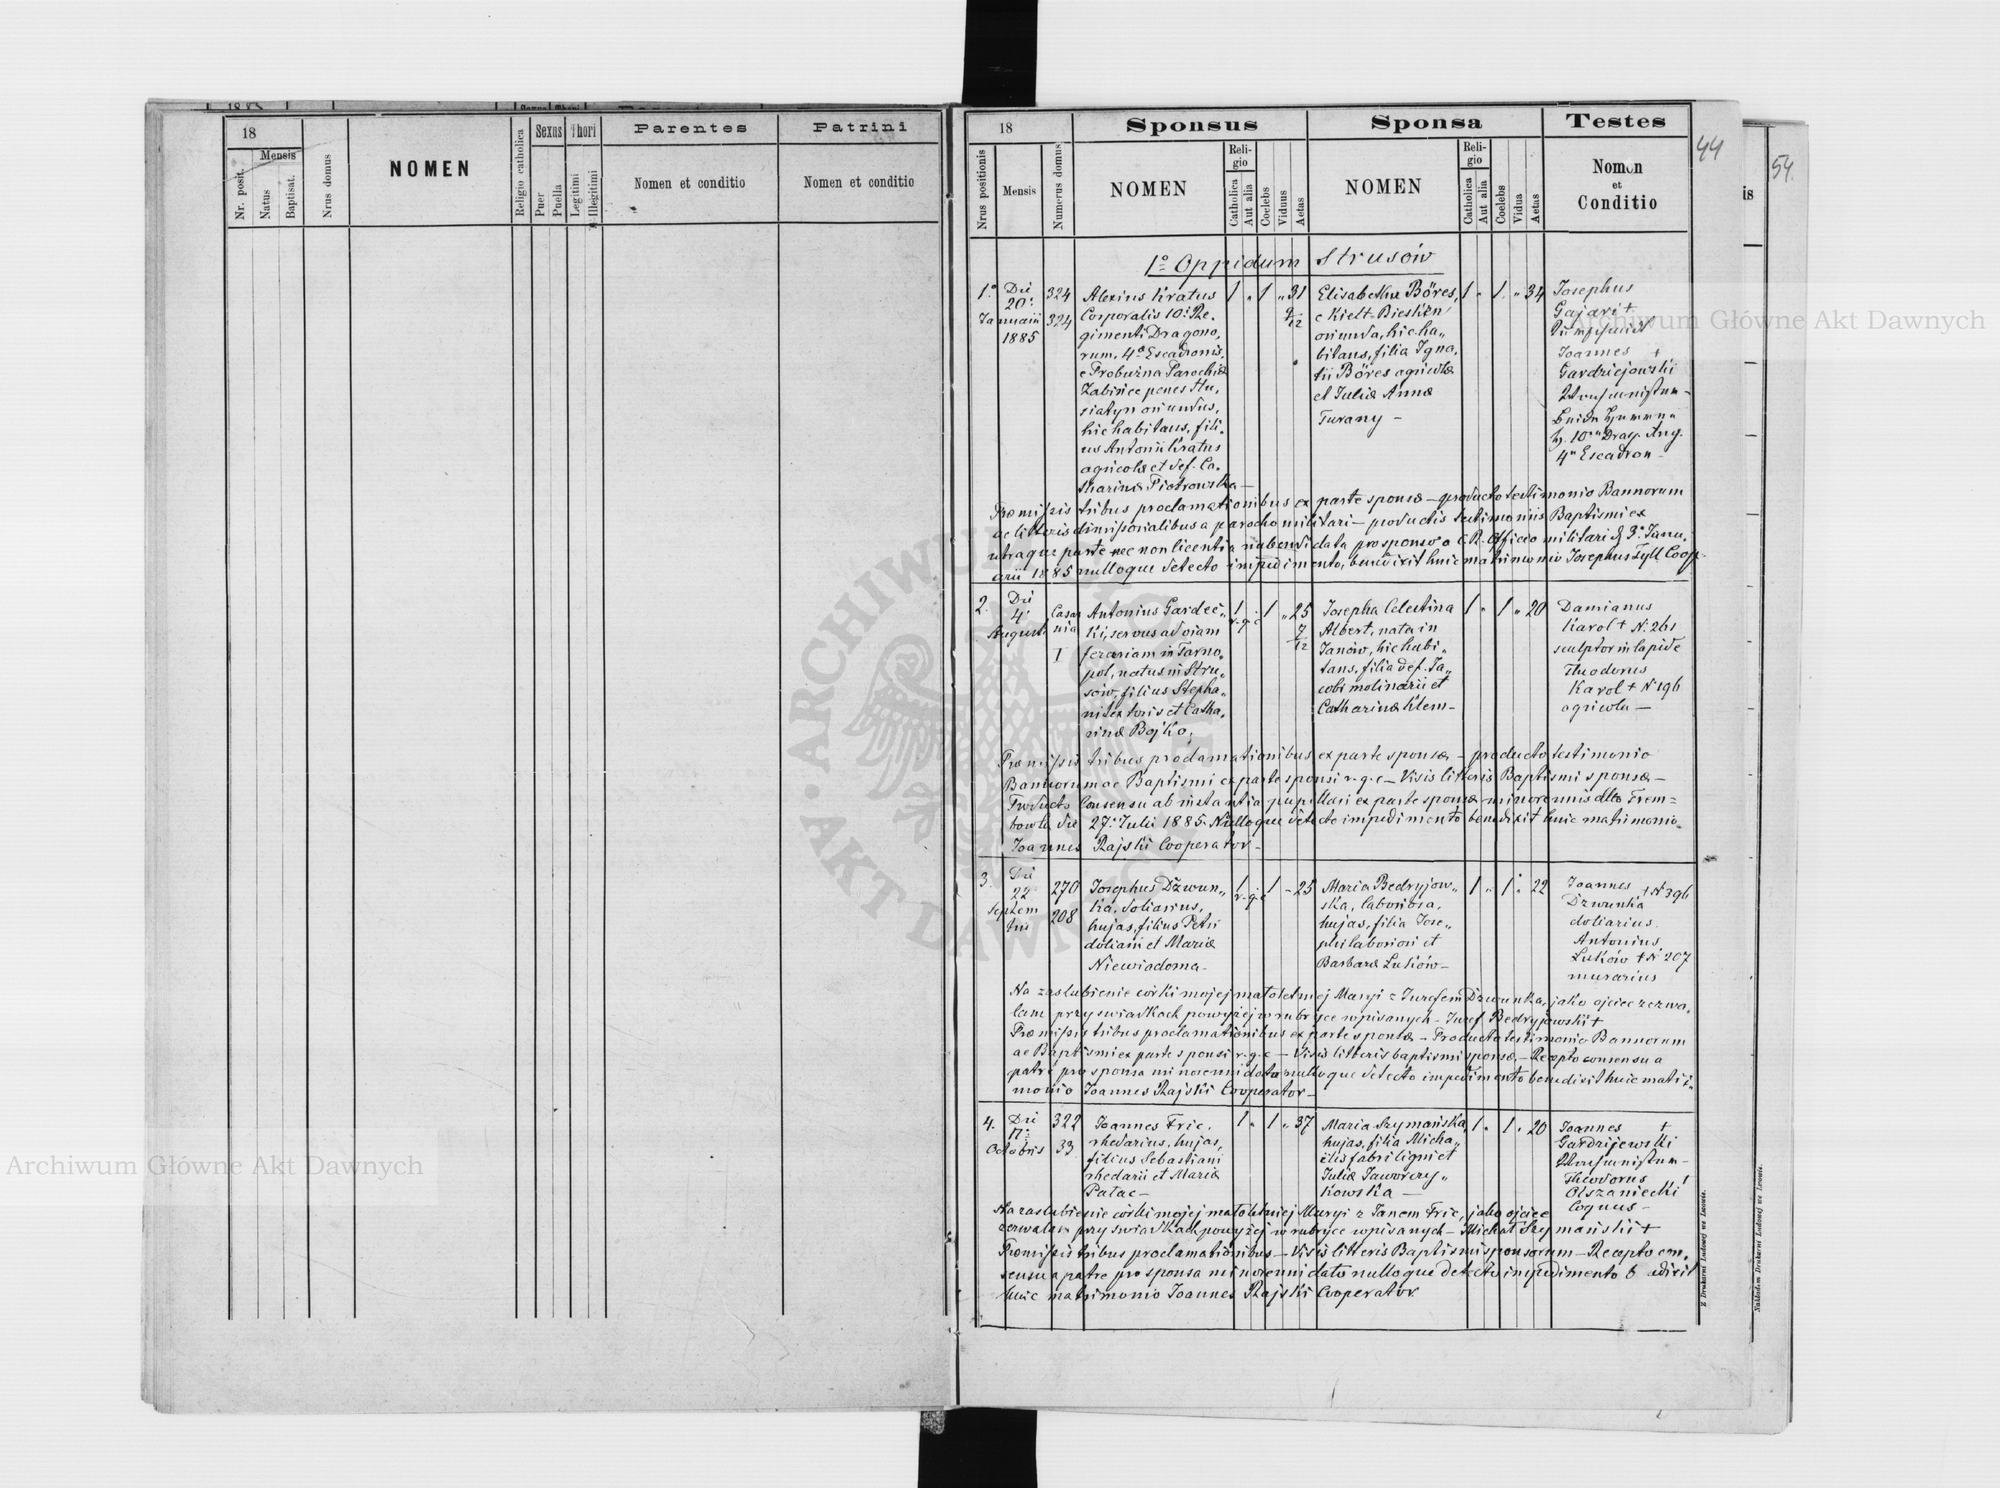 1885
18
Mensis
Nr. posit.
Natus
Baptisat.
Nrus domus
NOMEN
Religio catholica
Sexus
Puer
Puella
Thori
Legitimi
Illegitimi
Parentes
Nomen et conditio
Patrini
Nomen et conditio
18
Nrus positionis
Mensis
Numerus domus
Sponsus
NOMEN
Religio
Catholica
Aut alia
Coelebs
Viduus
Aetas
Sponsa
NOMEN
Religio
Catholica
Aut alia
Coelebs
Vidua
Aetas
Testes
Nomen
et
Conditio
44
54.
1º Oppidum Strusów
1.
Die
20
Januarii
1885
324
324
Alexius Kratus
Corporalis 10. Re-
gimenti Dragono-
rum, 4ª Escadronis,
e Probużna Parochiæ
Zabińce penes Hu-
siatyn oriundus,
hic habitans, fili-
us Antonii Kratus
agricolæ et def. Ca-
tharinæ Piotrowska –
1 „ 1 „ 31
9/12
Elisabetha Böres,
e
oriunda, hic ha„
bitans, filia Igna„
tii Böres agricolæ
et Juliæ Annæ
Turany –
1 „ 1 „ 34
Josephus
Gajari +
Joannes +
Gardziejowski
10 Drag.
4 Escadron –
Præmissis tribus proclamationibus ex parte sponsæ – producto testimonio Bannorum
ac litteris dimissorialibus a parocho militari – productis testimoniis Baptismi ex
utraque parte nec non licentia nubendi data pro sponso a C. R. Officio militari d. 3. Janu„
arii 1885 nulloque detecto impedimento, benedixit huic matrimonio Josephus Tyll Coop.
2.
Die
4
Augusti
Casar
nia
I
Antonius Gardec„
ki, servus ad viam
ferrariam in Tarno„
pol, natus in Stru„
sów, filius Stepha„
ni textoris et Catha„
rinæ Bojko,
1 r.g.c 1 „ 25
7/12
Josepha Celestina
Albert, nata in
Janów, hic habi„
tans, filia def. Ja„
cobi molinarii et
Catharinæ Klem –
1 „ 1 „ 20
Damianus
Karol + N. 261
sculptor in lapide
Theodorus
Karol + N 196
agricola –
Præmissis tribus proclamationibus ex parte sponsæ – producto testimonio
Bannorum ac Baptismi ex parte sponsi r.g.c – Visis litteris Baptismi sponsæ –
Producto Consensu ab instantia pupillari ex parte sponsæ minorennis dtto Trem=
bowla die 27. Julii 1885. Nulloque detecto impedimento benedixit huic matrimonio
Joannes Rajski Cooperator –
3.
Die
22
Septem
bris
270
208
Josephus Dzwun„
ka, doliarius,
hujas, filius Petri
doliarii et Mariæ
Niewiadoma –
1 r.g.c 1 – 25
Maria Bedryjow„
ska, laboriosa,
hujas, filia Jose„
phi laboriosi et
Barbaræ Luków –
1 „ 1 „ 22
Joannes
Dzwunka + N 396
doliarius.
Antonius
Luków + N 207
murarius
Na zaslubienie córki mojej małoletniej Maryi z Jurefem Dzwunka, jako ojciec zezwa„
lam przy swiadkach powyżej w rubryce wpisanych – Juref Bedryjowski +
Præmissis tribus proclamationibus ex parte sponsæ – Producto testimonio Bannorum
ac Baptismi ex parte sponsi r.g.c – Visis litteris baptismi sponsæ, – Recepto consensu a
patre pro sponsa minorenni dato nulloque detecto impedimento benedixit huic matri„
monio Joannes Rajski Cooperator –
4.
Die
17
Octobris
322
33
Joannes Fric,
rhedarius, hujas,
filius Sebastiani
rhedarii et Mariæ
Pałac –
1 „ 1 „ 37
Maria Szymańska,
hujas, filia Micha„
ëlis fabri ligni et
Juliæ Jaworczy„
kowska –
1 „ 1 „ 20
Joannes +
Gardzijewski
Theodorus
Olszaniecki
Coquus –
Na zaslubienie córki mojej małoletniej Maryi z Janem Fric, jako ojciec
zezwalam przy swiadkach powyżej w rubryce wpisanych – Michał Szymański +
Præmissis tribus proclamationibus – Visis litteris Baptismi sponsorum – Recepto con„
sensu a patre pro sponsa minorenni dato nulloque detecto impedimento b edixit
huic matrimonio Joannes Rajski Cooperator
Z Drukarni Ludowej we Lwowie.
Nakładem Drukarni Ludowej we Lwowie.
Archiwum Główne Akt Dawnych
Archiwum Główne Akt Dawnych
ARCHIWUM GŁÓWNE • AKT DAWNYCH